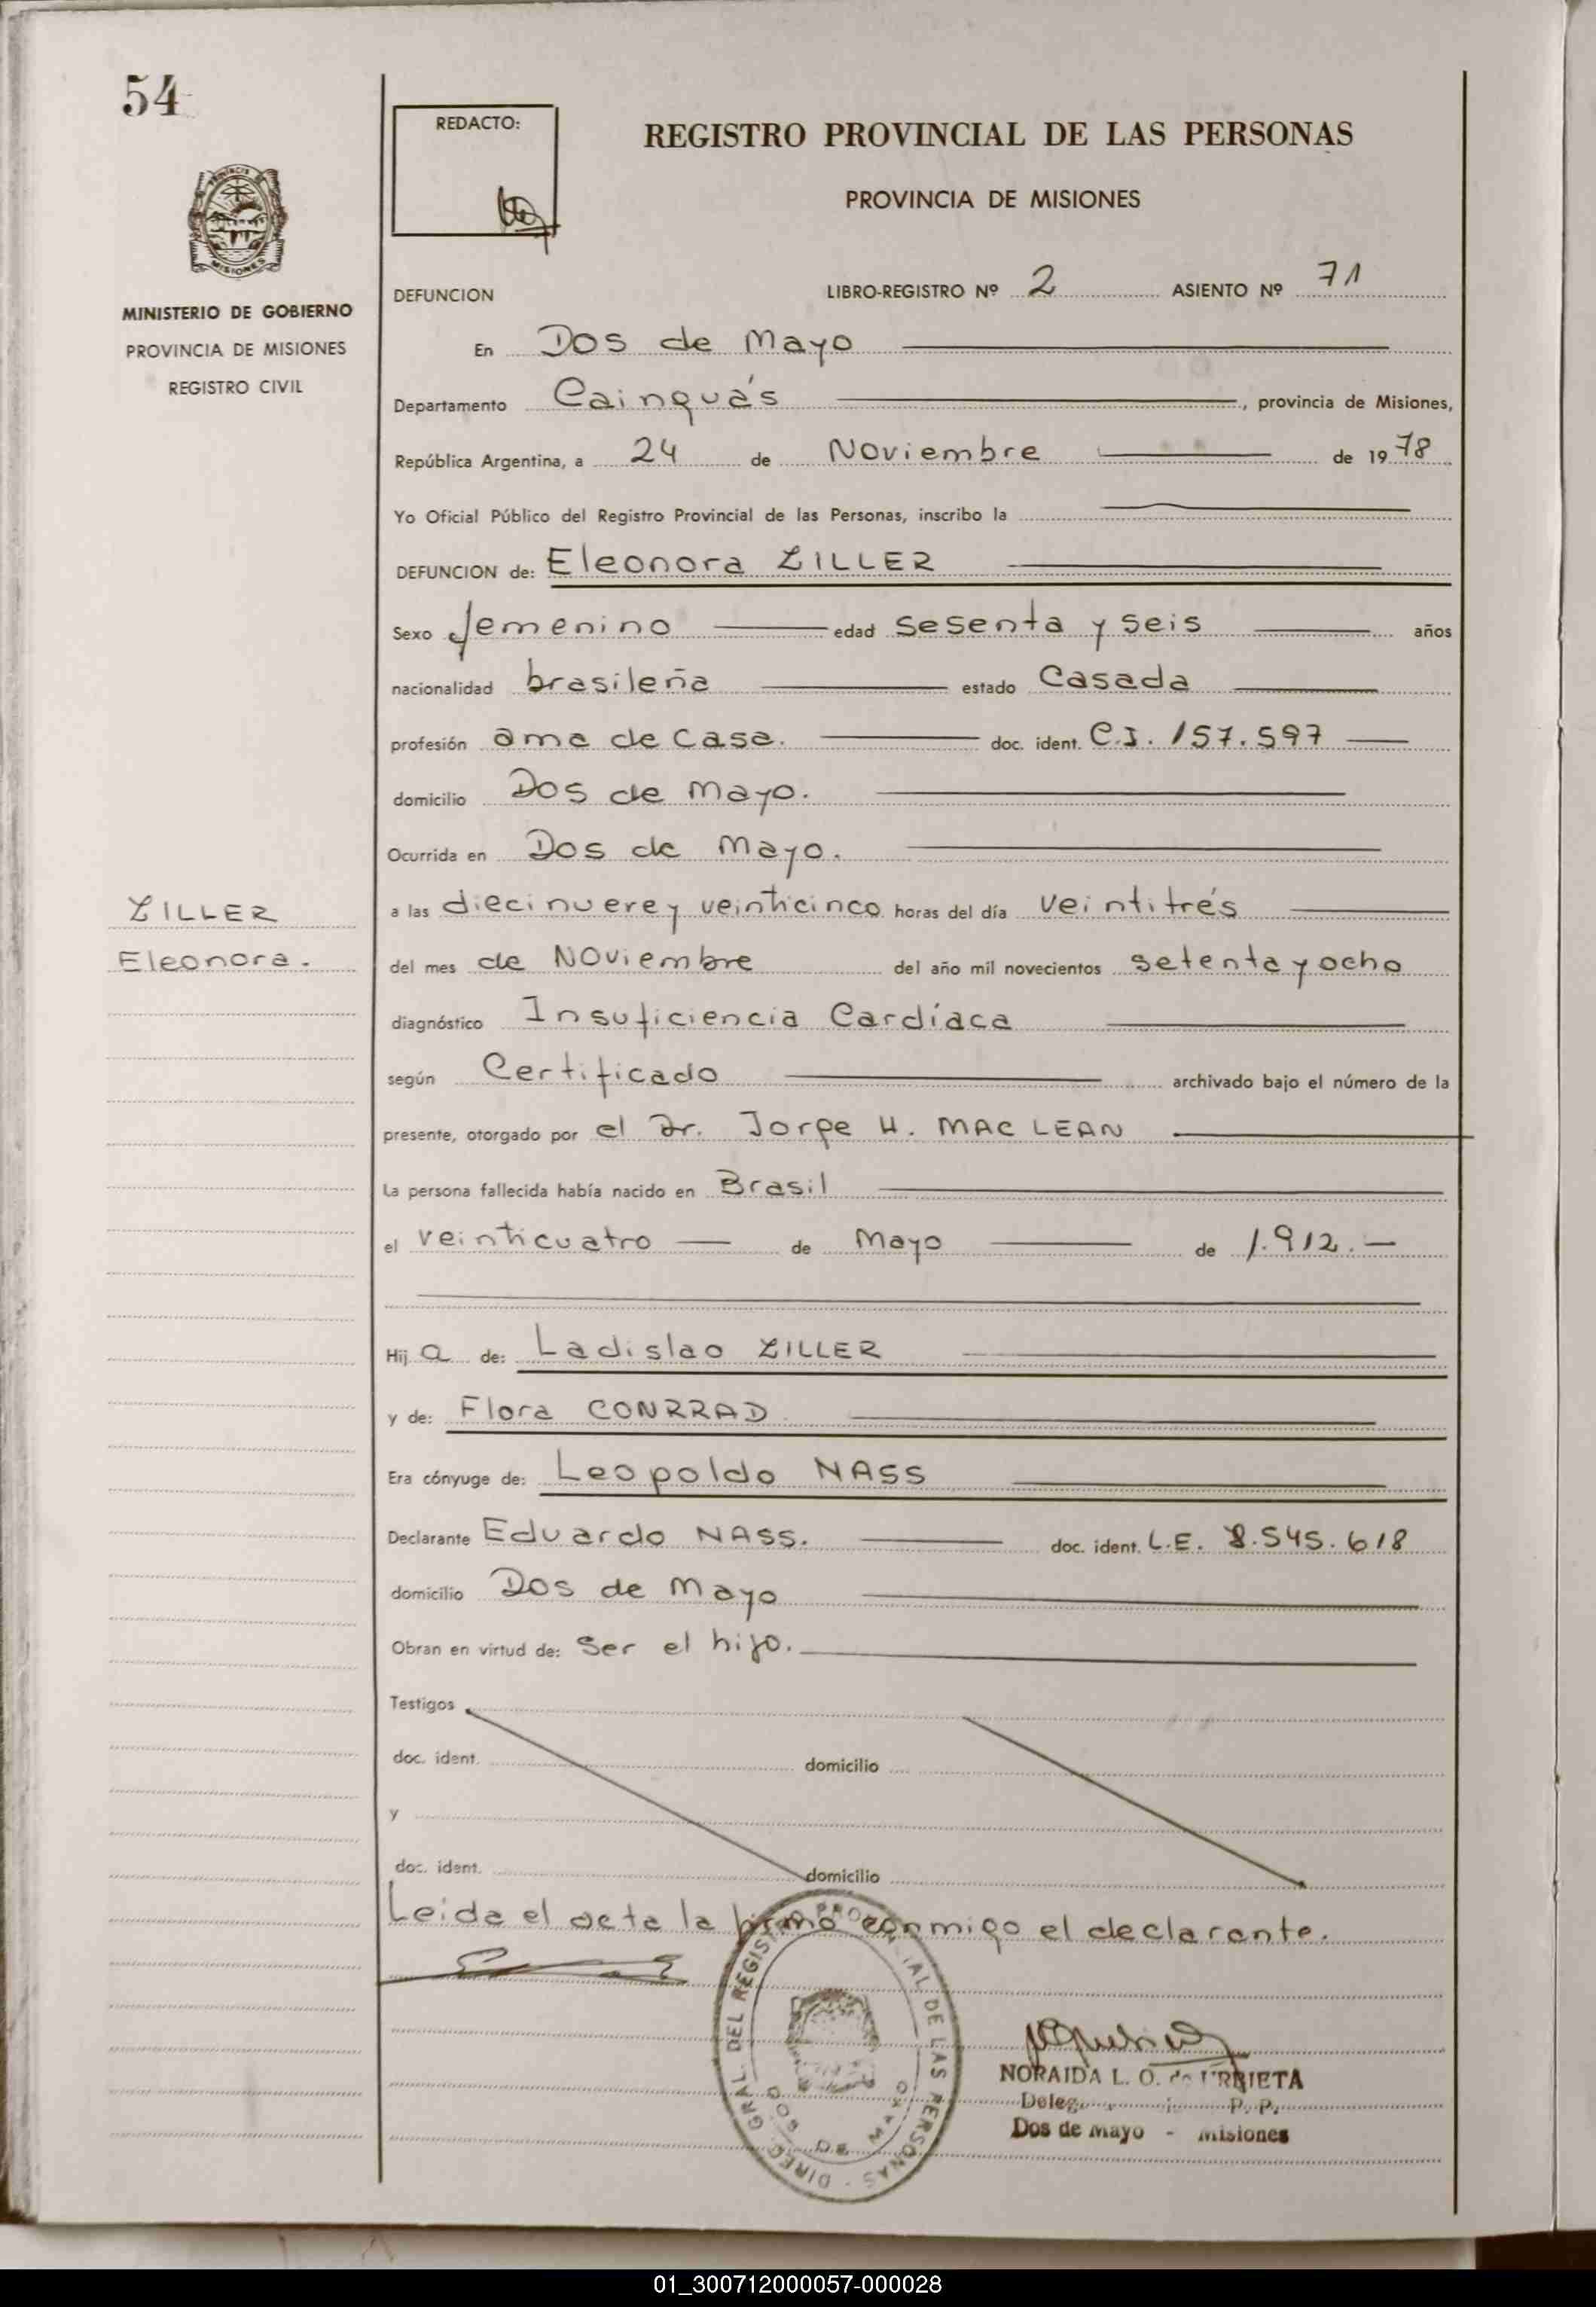 54
REDACTO:
REGISTRO PROVINCIAL DE LAS PERSONAS
PROVINCIA DE MISIONES
MINISTERIO DE GOBIERNO
PROVINCIA DE MISIONES
REGISTRO CIVIL
DEFUNCION LIBRO-REGISTRO Nº 2 ASIENTO Nº 71
En Dos de Mayo
Departamento Cainguás, provincia de Misiones,
República Argentina, a 24 de Noviembre de 1978
Yo Oficial Público del Registro Provincial de las Personas, inscribo la
DEFUNCION de: Eleonora ZILLER
Sexo femenino edad sesenta y seis años
nacionalidad brasileña estado Casada
profesión ama de casa. doc. ident. C.I. 157.597
domicilio Dos de Mayo.
Ocurrida en Dos de Mayo.
ZILLER
Eleonora.
a las diecinueve y veinticinco horas del día veintitrés
del mes de Noviembre del año mil novecientos setenta y ocho
diagnóstico Insuficiencia Cardíaca
según Certificado archivado bajo el número de la
presente, otorgado por el Dr. Jorge H. MAC LEAN
La persona fallecida había nacido en Brasil
el veinticuatro de Mayo de 1.912.-
Hija de: Ladislao ZILLER
y de: Flora CONRRAD
Era cónyuge de: Leopoldo NASS
Declarante Eduardo NASS. doc. ident. L.E. 8.545.618
domicilio Dos de Mayo
Obran en virtud de: ser el hijo.
Testigos
doc. ident. domicilio
y
doc. ident. domicilio
Leida el acta la firmó conmigo el declarante.
DIREC. GRAL. DEL REGISTRO PROVINCIAL DE LAS PERSONAS
DOS DE MAYO
NORAIDA L. O. de URRIETA
Deleg. P. P.
Dos de Mayo - Misiones
01_300712000057-000028